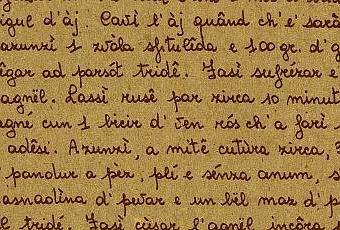 igul d'àj. Cavì l'àj quând ch'e' sarà
azunzì 1 zvòla sfitulîda e 100 gr. d'g
îgar ad parsót tridê. Fasì sufrézar e
agnël. Lassì rusê par zirca 10 minut
agné cun 1 bicir d'ven rós ch'a farì
adêsi. Azunzì, a mitê cutùra zirca,
pandur a pëz, plí e sénza anum, s
asnadìna d'pévar e un bël maz d'p
tridé. Fasì cùsar l'agnël incôra